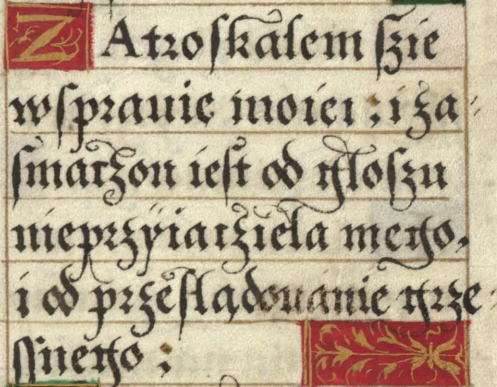 ZAtroskalem szie
wsprauie moiei : i za
smatzon iest od gloszu
nieprzyiatziela mego,
i od przesladouanie grze
ssnego :